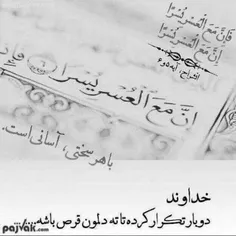 فَإِنَّ مَعَ الْعُسْرِ يُسْرًا
إِنَّ مَعَ الْعُسْرِ يُسْرًا
انشراح، آیه ۵و۶
إِنَّ مَعَ الْعُسْرِ يُسْرًا
باهر سختی، آسانی است.
خداوند
دوبار تکرار کرده تا ته دلمون قرص باشه.......
pajvak.com